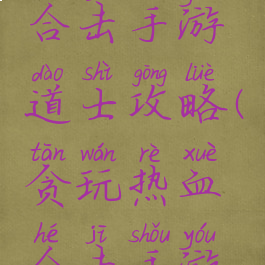 合击手游
dào shì gōng lüè
道士攻略(
tān wán rè xuè
贪玩热血
hé jī shǒu yóu
合击手游